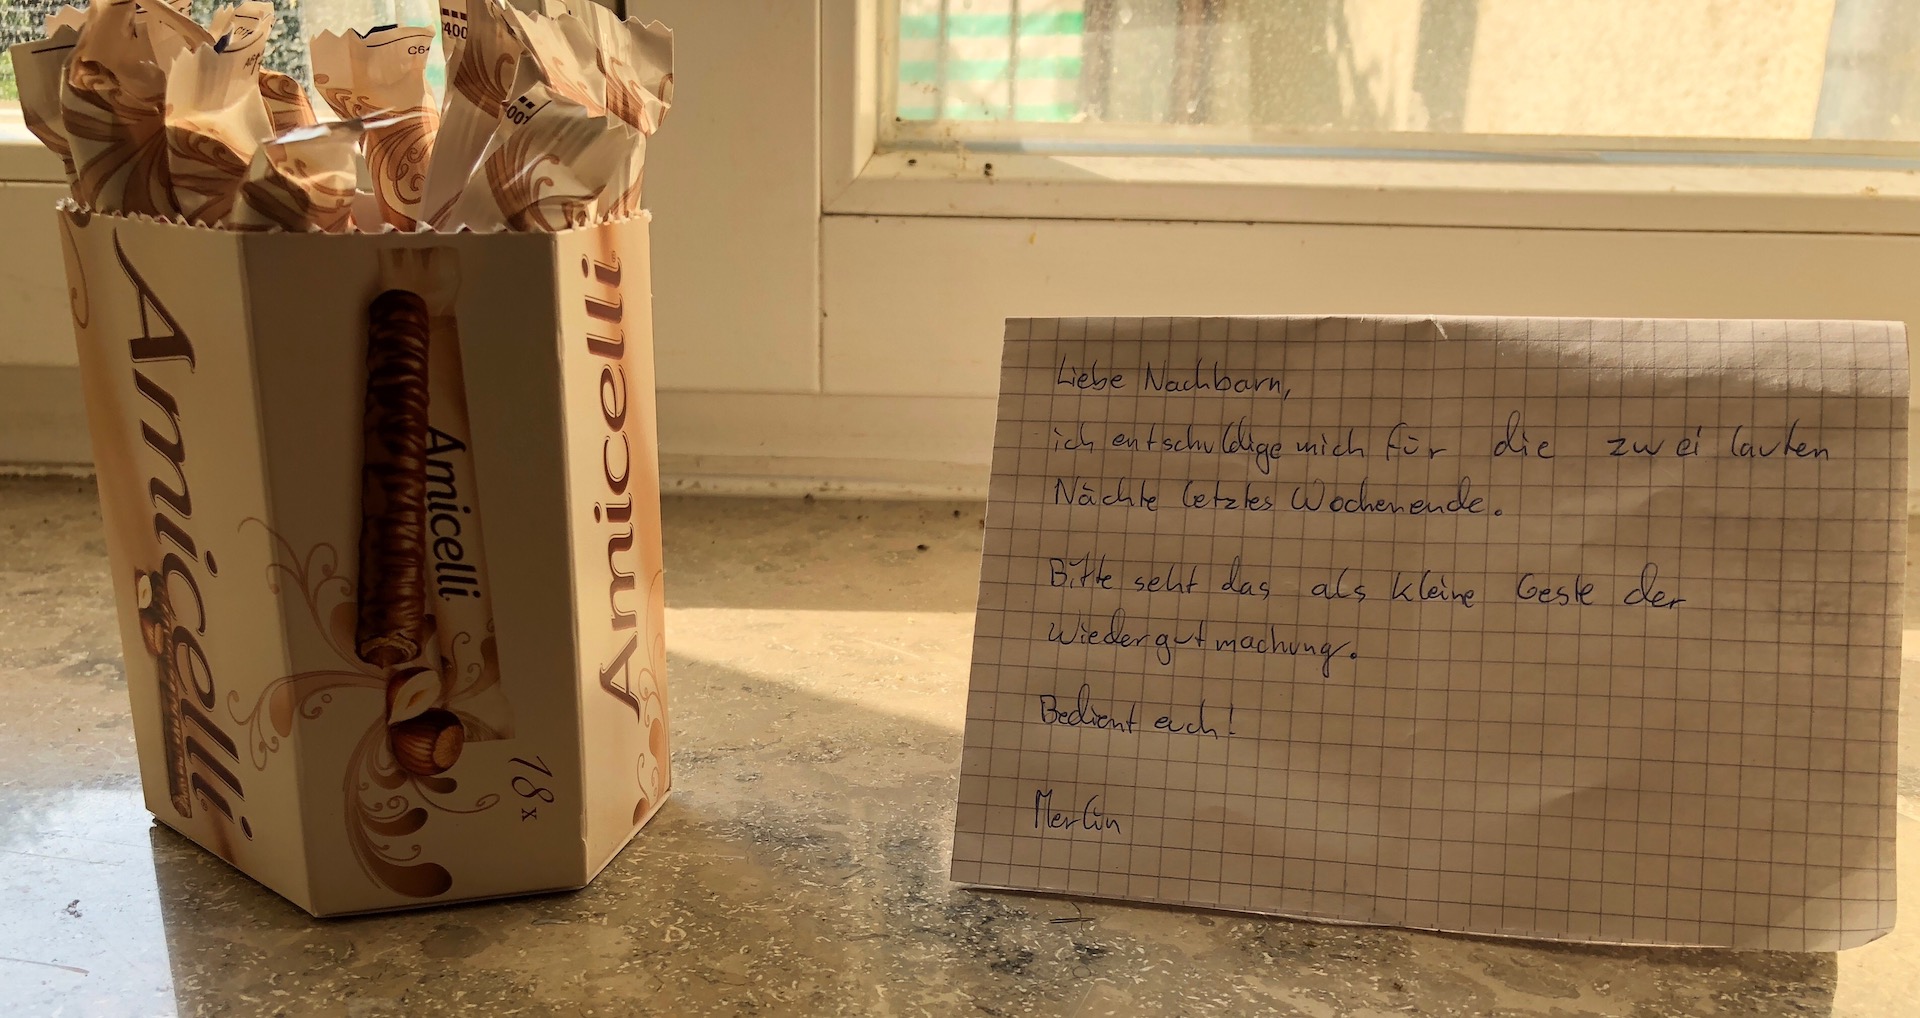 Amicelli
Amicelli
Amicelli
18x
C64
400
001
Liebe Nachbarn,
ich entschuldige mich für die zwei lauten
Nächte letztes Wochenende.
Bitte seht das als kleine Geste der
Wiedergutmachung.
Bedient euch!
Merlin